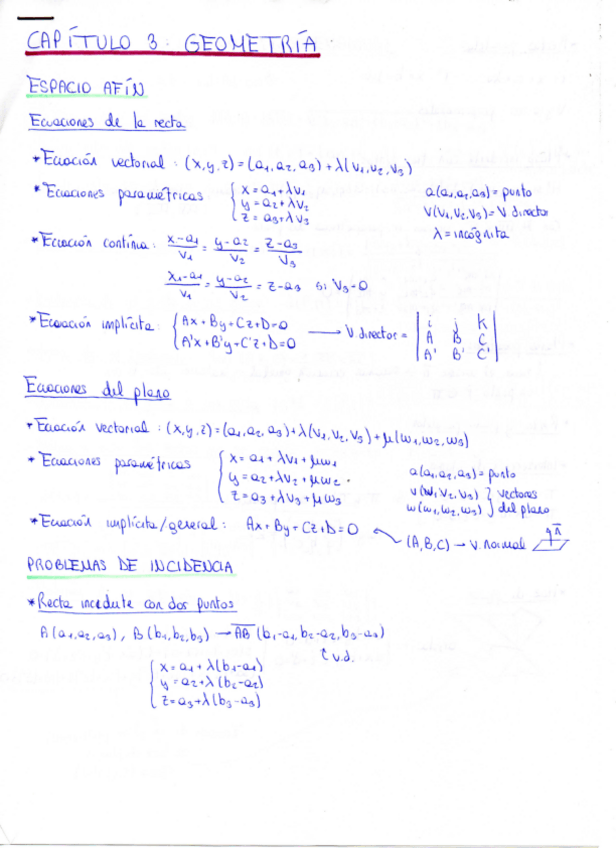 CAPÍTULO 3: GEOMETRÍA
ESPACIO AFÍN
Ecuaciones de la recta
* Ecuación vectorial : (x,y,z) = (a1, a2, a3) + λ(v1, v2, v3)
* Ecuaciones paramétricas { x = a1 + λv1
y = a2 + λv2
z = a3 + λv3
a(a1, a2, a3) = punto
v(v1, v2, v3) = v director
λ = incógnita
* Ecuación contínua: (x-a1)/v1 = (y-a2)/v2 = (z-a3)/v3
(x-a1)/v1 = (y-a2)/v2 = z-a3 si v3=0
* Ecuación implícita: { Ax + By + Cz + D = 0
A'x + B'y + C'z + D = 0
→ V. director = | i j k |
| A B C |
| A' B' C' |
Ecuaciones del plano
* Ecuación vectorial : (x,y,z) = (a1, a2, a3) + λ(v1, v2, v3) + μ(w1, w2, w3)
* Ecuaciones paramétricas { x = a1 + λv1 + μw1
y = a2 + λv2 + μw2
z = a3 + λv3 + μw3
a(a1, a2, a3) = punto
v(v1, v2, v3) } vectores
w(w1, w2, w3) } del plano
* Ecuación implícita/general : Ax + By + Cz + D = 0
(A,B,C) → V. normal
PROBLEMAS DE INCIDENCIA
* Recta incidente con dos puntos
A(a1, a2, a3), B(b1, b2, b3) → AB (b1-a1, b2-a2, b3-a3)
v.d.
{ x = a1 + λ(b1-a1)
y = a2 + λ(b2-a2)
z = a3 + λ(b3-a3)